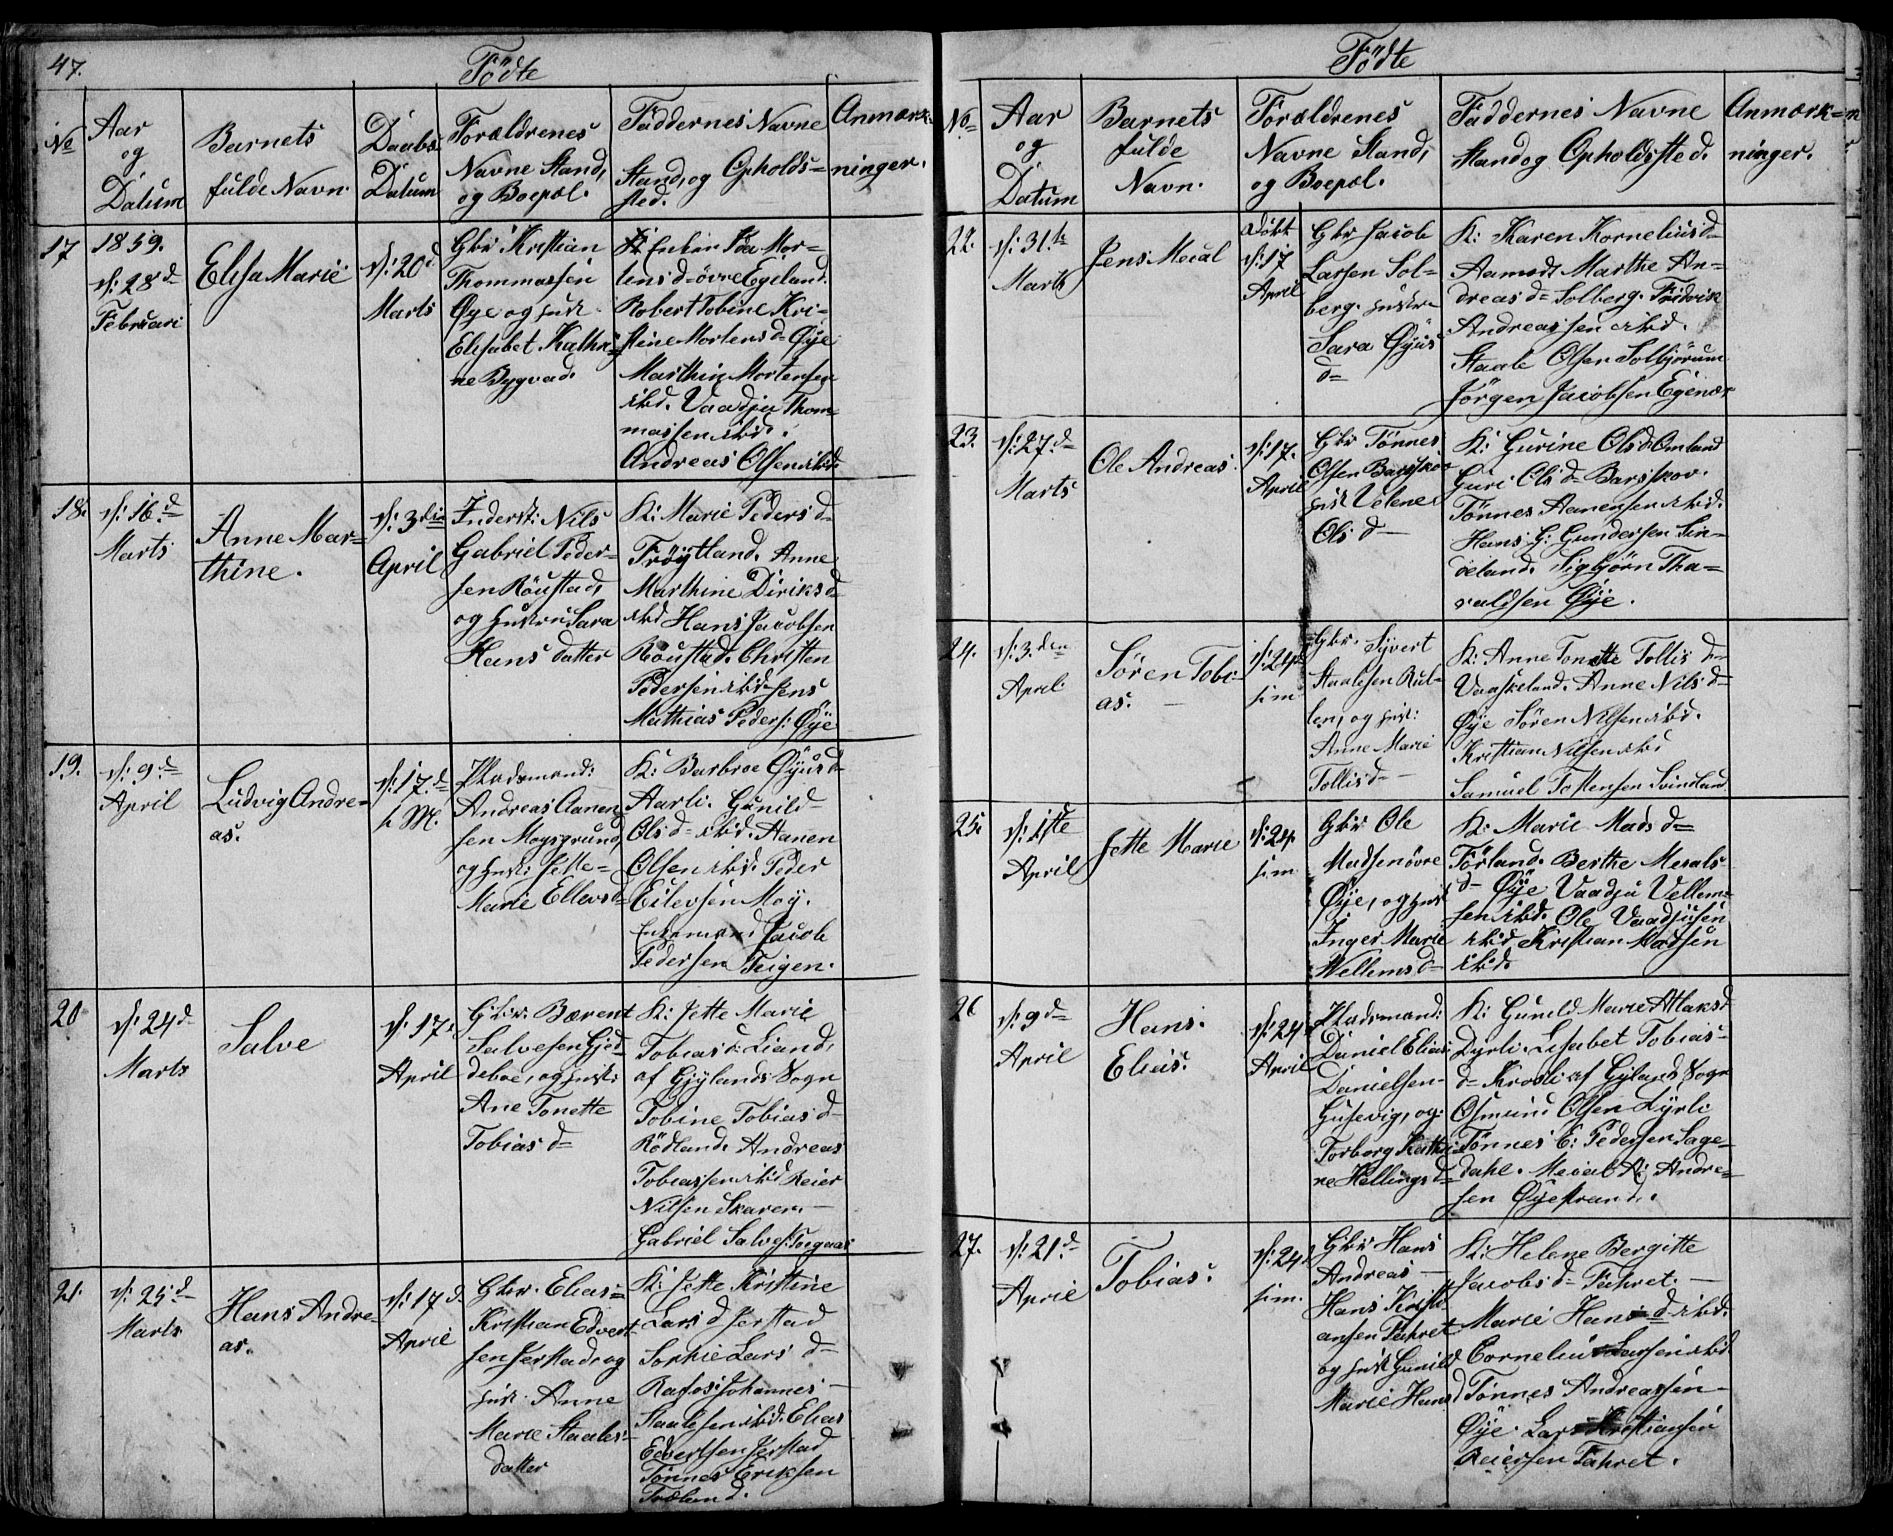 47.
Födte
No
Aar
og
Datum
Barnets
fulde Navn.
Daabs
Datum
Forældrenes
Navne Stand,
og Boepæl.
Faddernes Navne
Stand, og Opholds=
sted.
Anmærk-
ninger.
17
1859.
d: 28d
Februari
Elisa Marie
d: 20d
Marts
Gbr Kristian
Thommassen
Øye og hust.
Elisabet Kathri=
ne Bygvad.
K: Enken Mor=
tens d= övre Egeland.
Robert Tobine Kri-
stine Mortens d= Øye
Marthin Mortensen
ibd. Vaadju Thom
massen ibid.
Andreas Olsen ibid.
18.
d: 16.d
Marts
Anne Mar=
thine.
d: 3die
April
Inderst: Nils
Gabriel Peder-
sen Röustad,
og hustru Sara
Hans datter
K: Marie Peders d=
Fröytland. Anne
Marthine Diriks d=
ibd Hans Jacobsen
Röustad. Christen
Pedersen ibid Jens
Mathias Peders: Øye
19.
d: 9.d
April
Ludvig Andre=
as.
d: 17.d
s. M.
Pladsmand:
Andreas Aanen
sen Moysgrund,
og hust: Jette=
Marie Ellevs d=
K: Barbroe Øyus d=
Aarli. Gunild
Ols d= ibid. Aanen
Olsen ibid. Peder
Eilevsen Moy.
Enkemand Jacob
Pedersen Teigen.
20
d: 24d
Marts
Salve
d: 17d
April
Gbr: Bærent
Salvesen Gjed-
deboe, og hust:
Ane Tonette
Tobias d=
K: Jette Marie
Tobias d= Liand,
af Gjylands Sogn
Tobine Tobias d=
Rödland. Andreas
Tobiassen ibid Reier
Nilsen Skaren. —
Gabriel Salves:
21.
d: 25d
Marts
Hans Andre-
as.
d: 17d
April
Gbr. Elias=
Kristian Edvert
sen Jerstad og
hust. Anne
Marie Staales-
datter
K: Jette Kristine
Lars d Jerstad
Sophie Lars d=
Rafos: Johannes —
Staalesen ibid. Elias
Edvertsen Jerstad
Tönnes Eriksen
Træland.
Födte
No
Aar
og
Datum
Barnets
fulde
Navn.
Forældrenes
Navne Stand,
og Boepæl.
Faddernes Navne
Stand og Opholdsted.
Anmærk=
ninger.
22.
d: 31.te
Marts
Jens Meial
Döbt
d: 17
April
Gbr Jacob
Larsen Sol-
berg. hustr.
Sara Øyus
d=
K: Karen Kornelius d=
Aamodt Marthe An-
dreas d= Solberg. Fridrik
Andreassen ibid.
Staale Olsen Solbjörum
Jörgen Jacobsen Egenæs
23.
d: 27.d
Marts
Ole Andreas.
d: 17.
April
Gbr Tönnes
Olsen Barsskov
hust Velene
Ols d —
K: Gurine Ols d Omland
Guri Ols d= Barsskov.
Tönnes Aanensen ibid.
Hans G: Gundersen Sin-
deland. Sigbjörn Tha=
raldsen Øÿe.
24.
d: 3.den
April
Sören Tobi-
as. —
d: 24d
s: m.
Gbr. Syvert
Staalesen Rul-
len, og hust:
Anne Marie
Tollis d= —
K: Anne Tonette Tollis d=
Vaaskeland. Anne Nils d=
Øye Sören Nilsen ibid.
Kristian Nilsen ibid
Samuel Tostensen Svindland
25.
d: 1ste
April
Jette Marie
d: 24.
s: m.
Gbr Ole
Madsen övre
Øye, og hust
Inger Marie
Wellems d=
K: Marie Mads d=
Förland. Berthe Merals
d= Øÿe Vaadju Vellem=
sen ibd. Ole Vaadjusen
ibid Kristian Madsen
ibid.
26
d: 9d
April
Hans.
Elias.
d: 24d
April
Pladsmand:
Daniel Elias
Danielsen
Gusevig, og
Torborg Kathri
ne Hellings d=
K: Gunild Marie Atlaks d
Dyrli. Lisabet Tobias-
d= Krosli af Gyland Sogn
Osmund Olsen Lyrli
Tönnes E: Pedersen Sage-
dahl. Meial A: Andre-
sen Øyestrand.
27.
d: 21.d
April
Tobias.
d: 24d
s: m.
Gbr Hans
Andreas —
Hans Kristi-
ansen Fahret
og hust Gunild
Marie Hans d
K: Helene Bergitte
Jacobs d= Fahret. —
Marie Hans d= ibid.
Cornelius Larsen ibid.
Tönnes Andreassen
Øÿe. Lars Kristiansen
Reiersen Fahret.